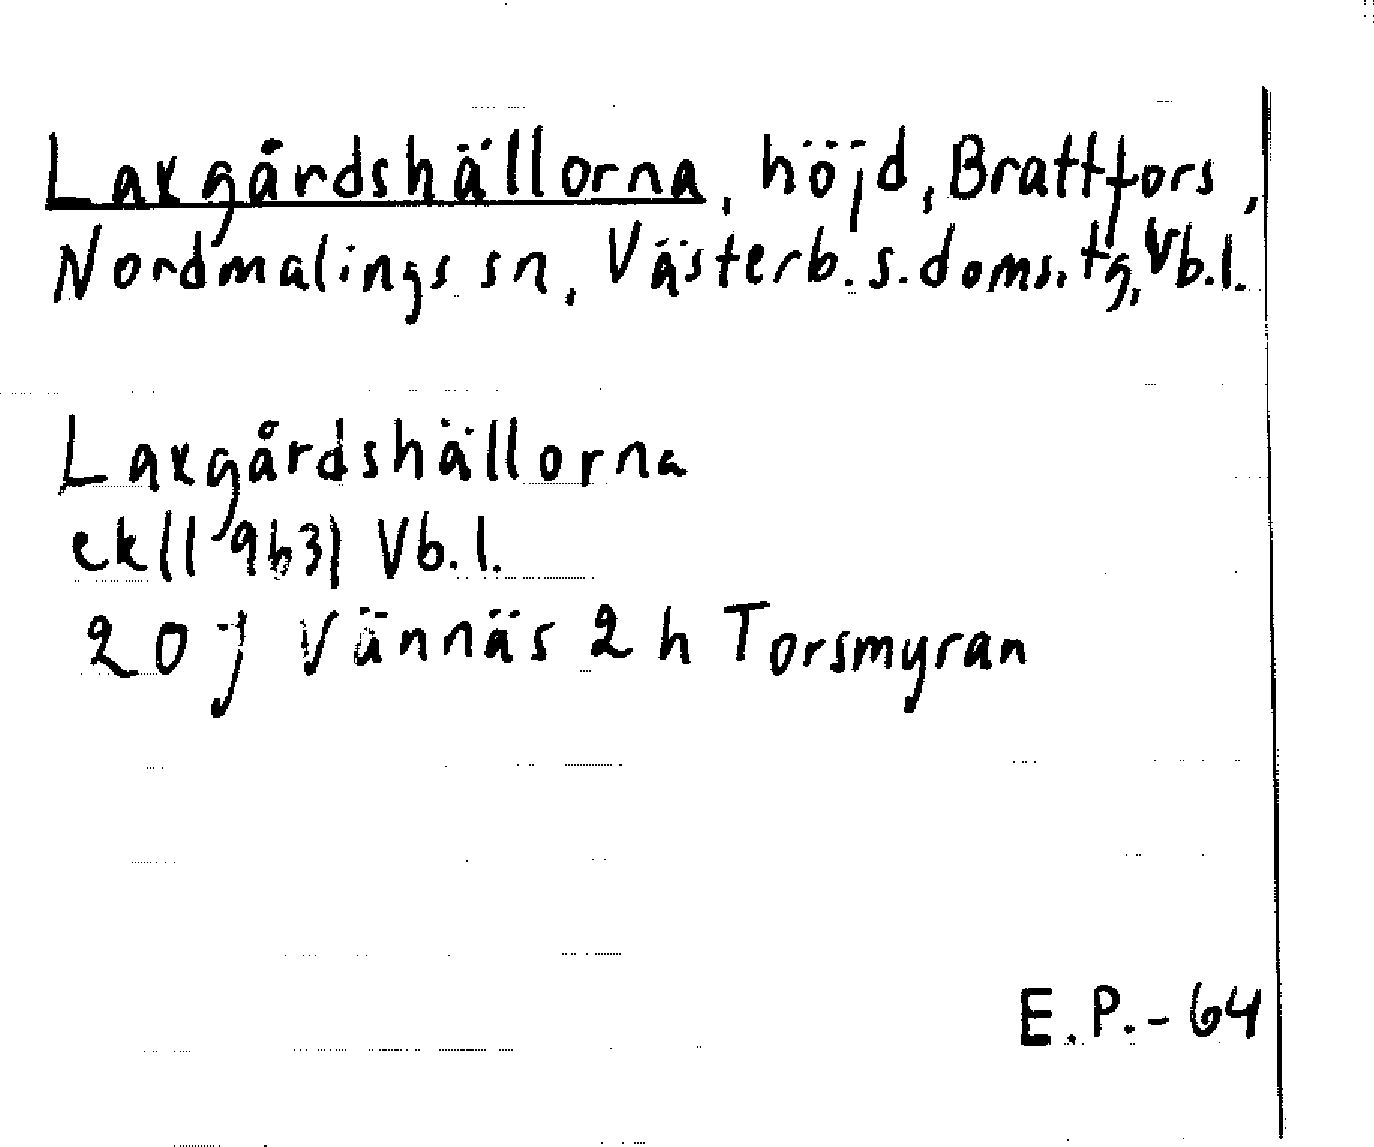 Laxgårdshällorna, höjd, Brattfors,
Nordmalings sn, Västerb. s. doms. tg, Vb.l.
Laxgårdshällorna
ek(1963) Vb.l.
20 J Vännäs 2 h Torsmyran
E.P.-64